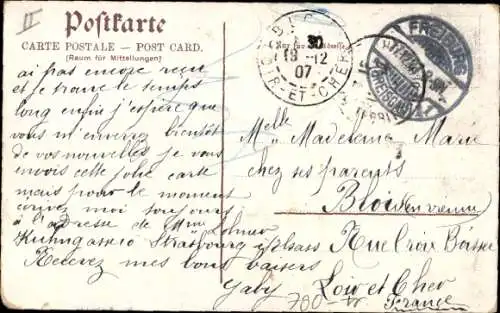 II
Postkarte
CARTE POSTALE – POST CARD.
(Raum für Mitteilungen)
ai pas encore reçu
et je trouve le temps
long enfin j'espère que
vous m'enverrez bientôt
de vos nouvelles je vous
envois cette jolie carte
mais pour le moment
moi toujours
à l'adresse de Mme
Strasbourg Alsass
Recevez mes bons baisers
Gaby
30
12
07
ET-CHER
FREIBURG
(BREISGAU)
Melle Madeleine Marie
chez ses parents
Blois en vienne
Rue Croix Boissée
Loir et Cher
France
700